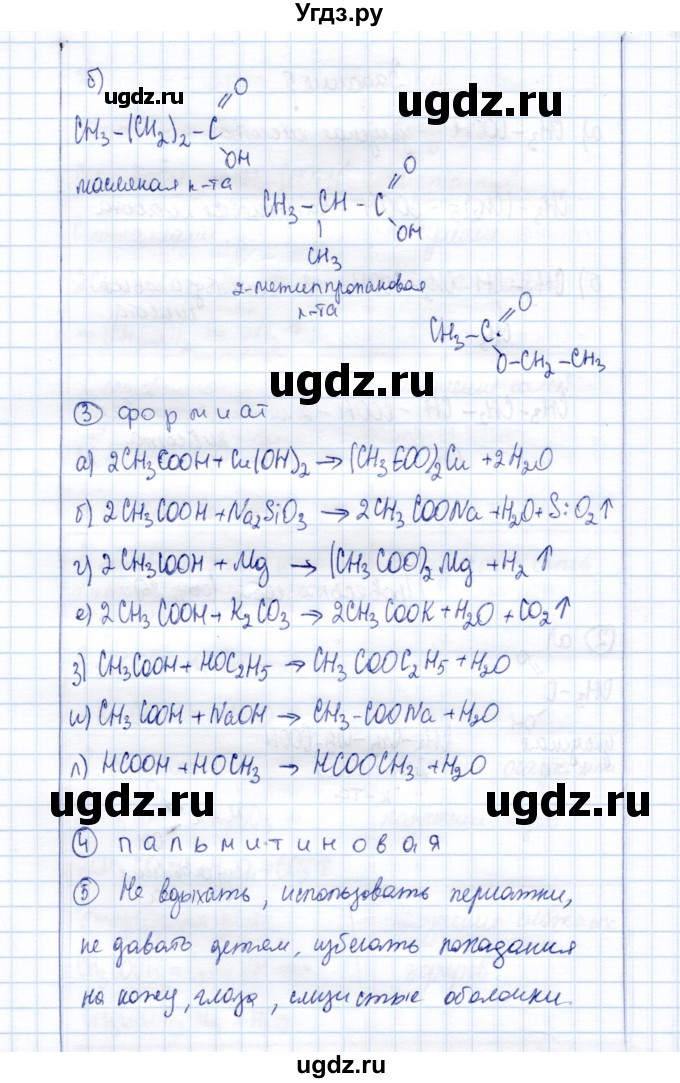 Угдз.ру
б)
ugdz.ru
ugdz.ru
CH₃–(CH₂)₂–C
O
OH
масляная к-та
CH₃–CH–C
O
OH
CH₃
2-метилпропановая
к-та
ugdz.ru
CH₃–C
O
O–CH₂–CH₃
ugdz.ru
③ формиат
а) 2CH₃COOH + Cu(OH)₂ → (CH₃COO)₂Cu + 2H₂O
б) 2CH₃COOH + Na₂SiO₃ → 2CH₃COONa + H₂O + SiO₂↑
г) 2CH₃COOH + Mg → (CH₃COO)₂Mg + H₂↑
е) 2CH₃COOH + K₂CO₃ → 2CH₃COOK + H₂O + CO₂↑
з) CH₃COOH + HOC₂H₅ → CH₃COOC₂H₅ + H₂O
и) CH₃COOH + NaOH → CH₃–COONa + H₂O
л) HCOOH + HOCH₃ → HCOOCH₃ + H₂O
ugdz.ru
ugdz.ru
④ пальмитиновая
⑤ Не вдыхать, использовать перчатки,
не давать детям, избегать попадания
на кожу, глаза, слизистые оболочки.
ugdz.ru